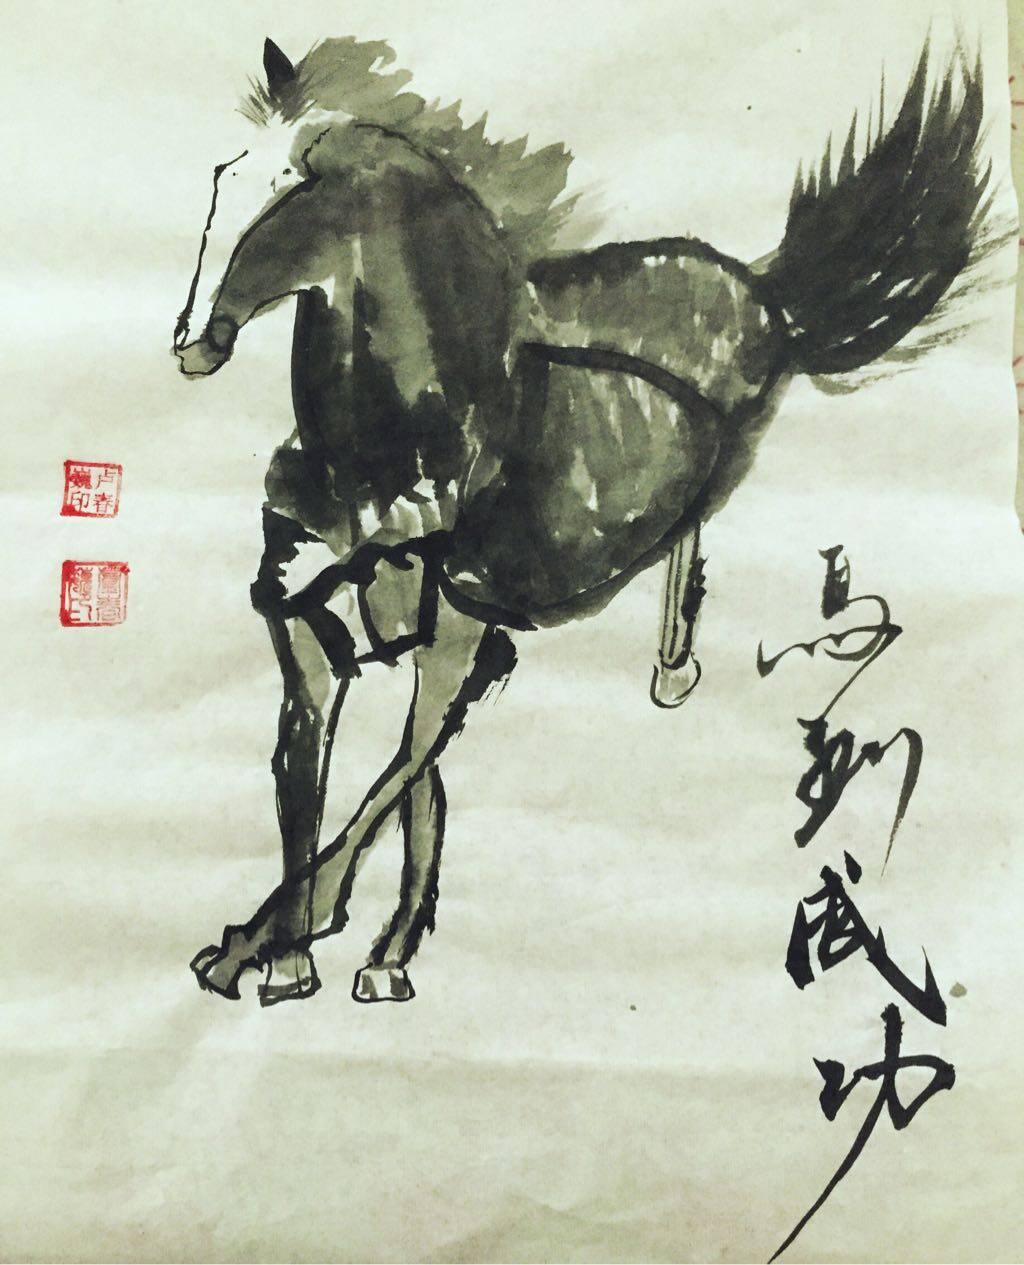 馬到成功
卢春巍印